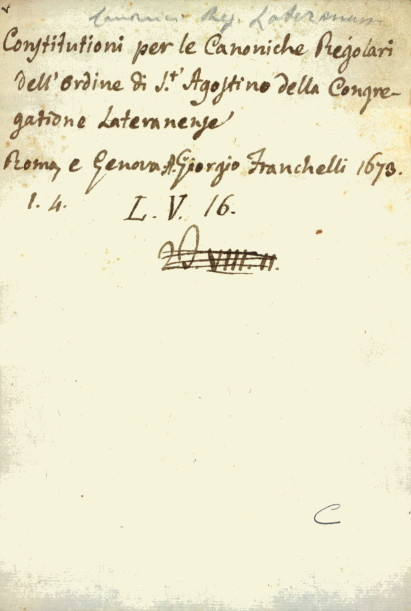 Canonici Reg. Lateranens
Constitutioni per le Canoniche Regolari
Dell'Ordine di S.t' Agostino della Congre-
gatione Lateranense
Roma, e Genova. A. Giorgio Franchelli 1673.
1. 4. L. V. 16.
VIII. 11.
C